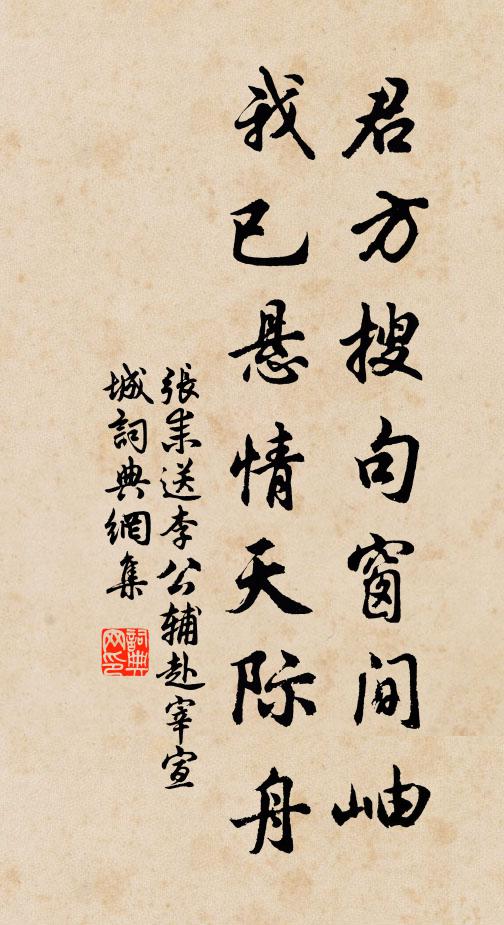 君方搜句窗间岫
我已悬情天际舟
張耒送李公辅赴宰宣
城詞典網集
詞典网印